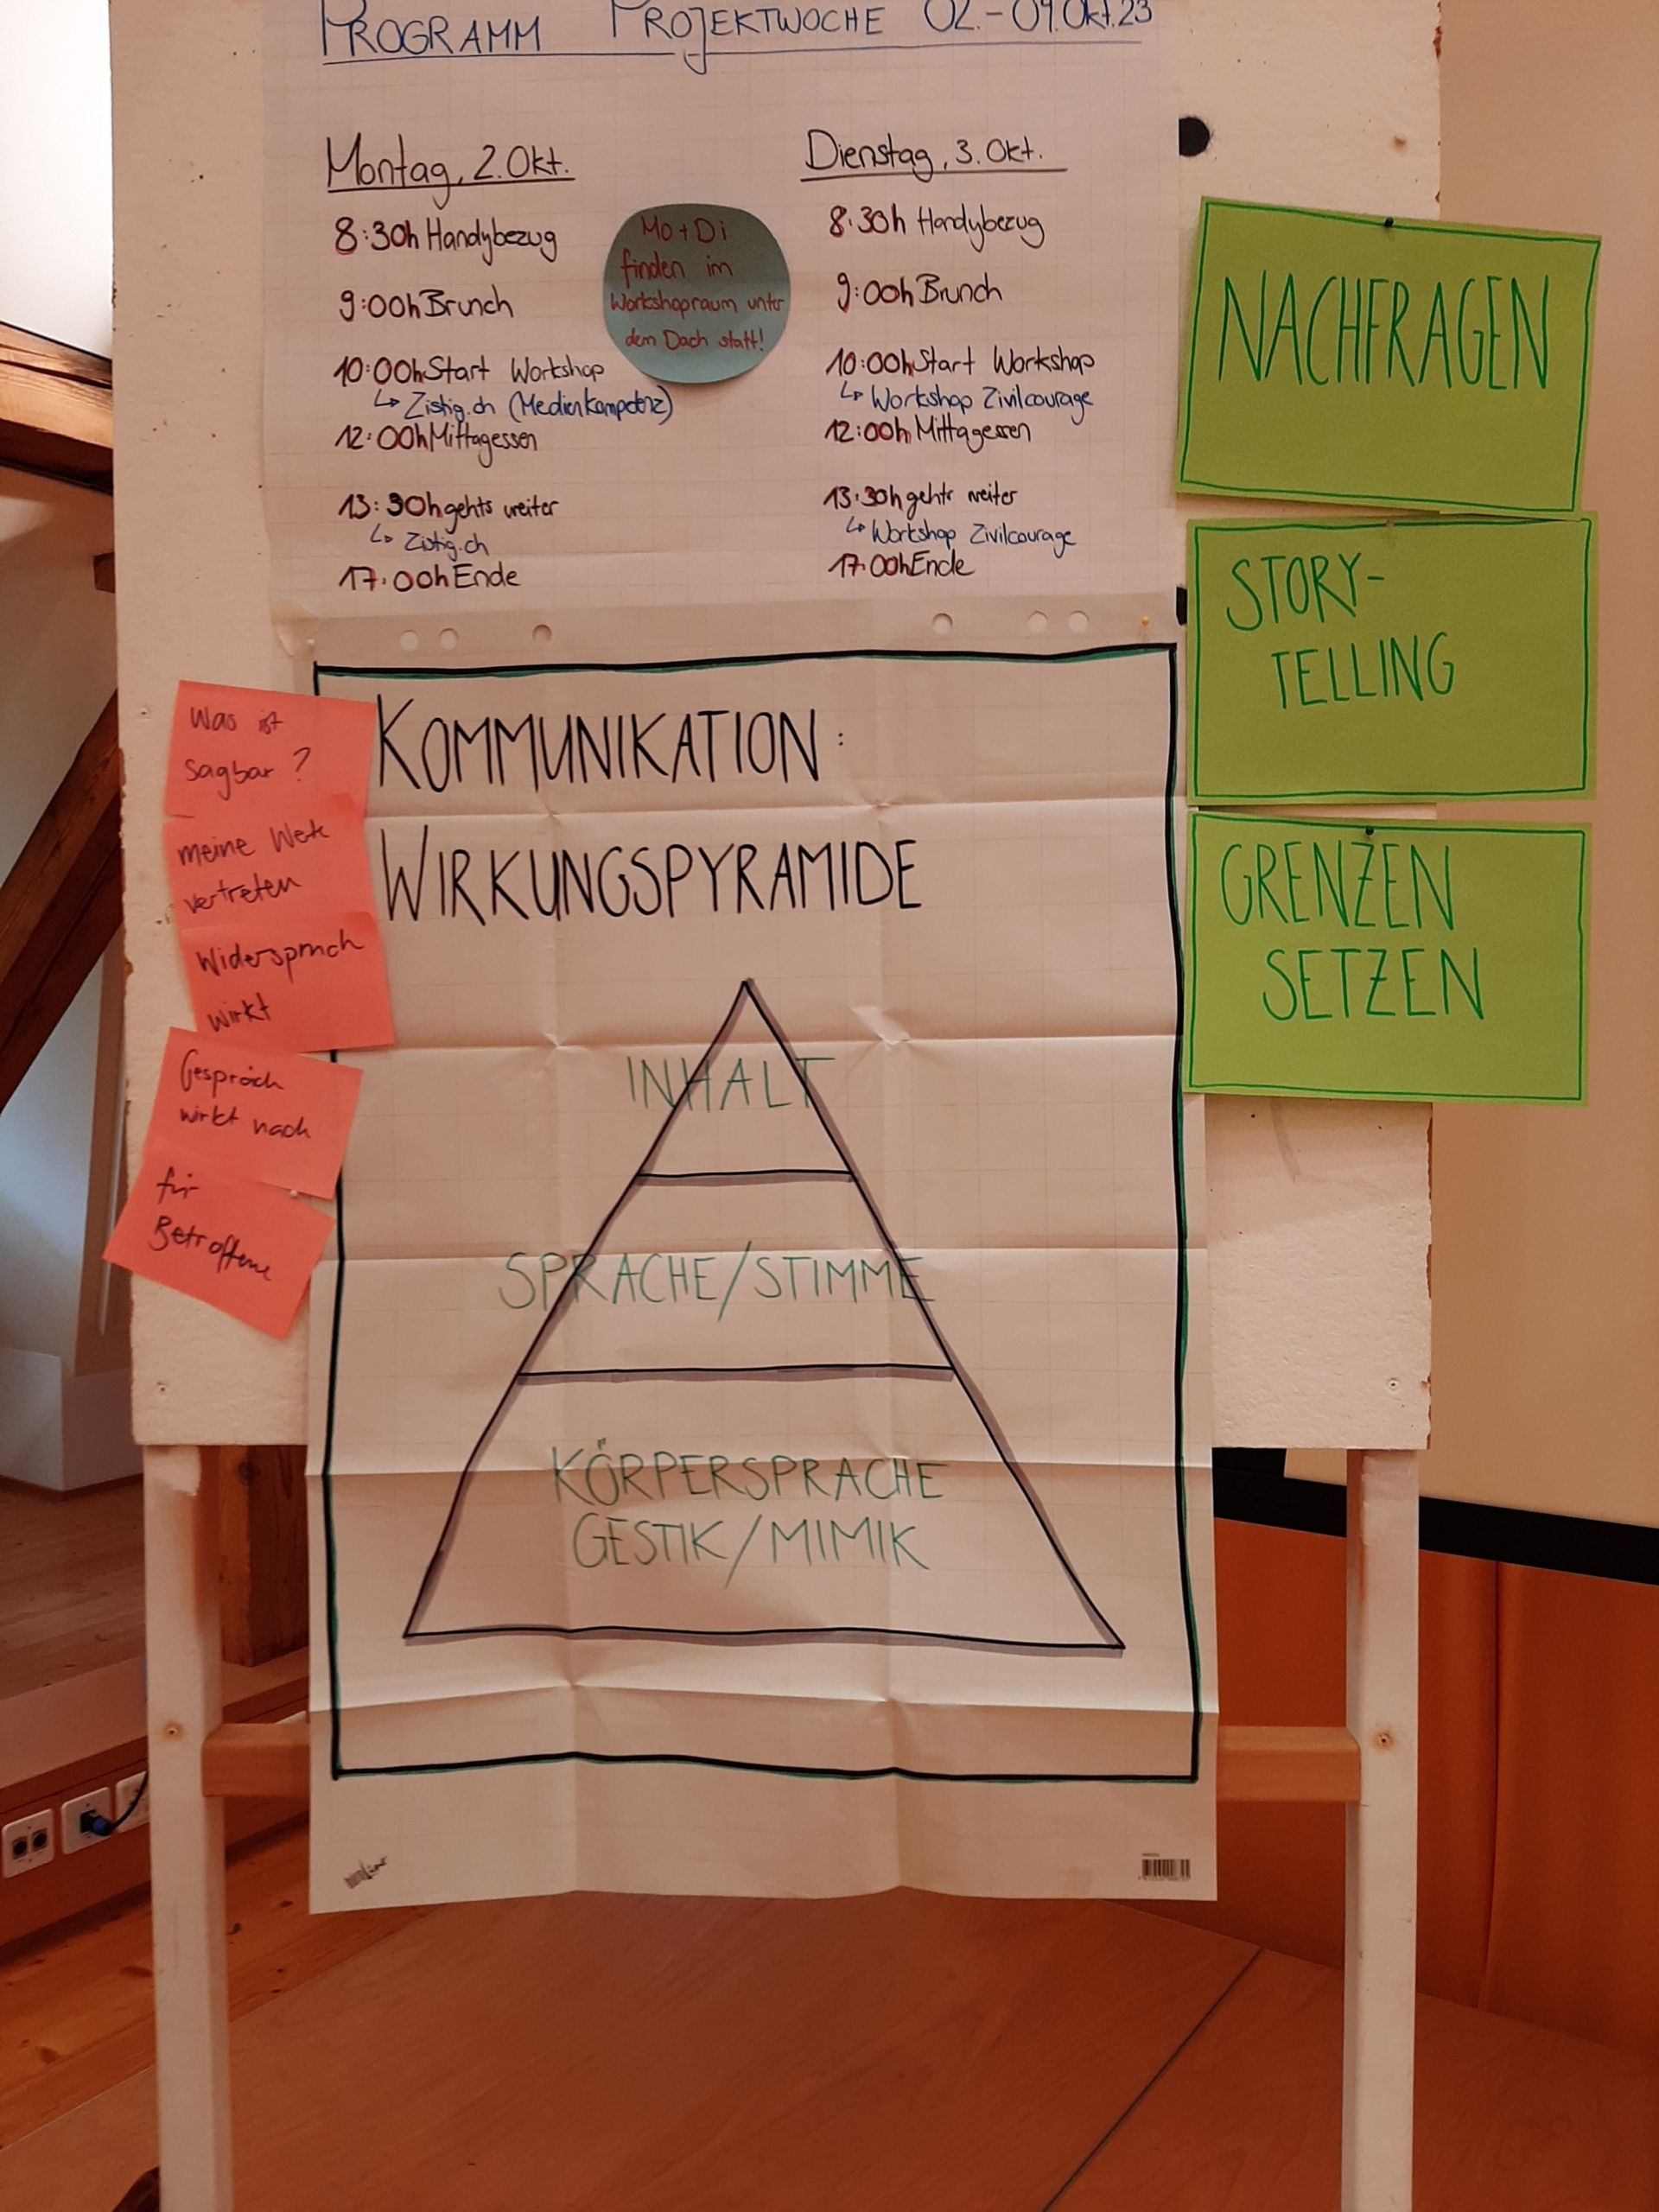 PROGRAMM PROJEKTWOCHE 02.-09.Okt.23
Montag, 2.Okt.
8:30h Handybezug
9:00h Brunch
10:00h Start Workshop
↳ Zistig.ch (Medienkompetenz)
12:00h Mittagessen
13:30h gehts weiter
↳ Zistig.ch
17:00h Ende
Mo + Di
finden im
Workshopraum unter
dem Dach statt!
Dienstag, 3.Okt.
8:30h Handybezug
9:00h Brunch
10:00h Start Workshop
↳ Workshop Zivilcourage
12:00h Mittagessen
13:30h gehts weiter
↳ Workshop Zivilcourage
17:00h Ende
NACHFRAGEN
STORY-
TELLING
GRENZEN
SETZEN
Was ist
sagbar?
meine Werte
vertreten
Widerspruch
wirkt
Gespräch
wirkt nach
für
Betroffene
KOMMUNIKATION:
WIRKUNGSPYRAMIDE
INHALT
SPRACHE/STIMME
KÖRPERSPRACHE
GESTIK/MIMIK